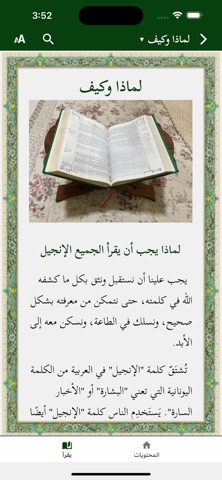 3:52
لماذا وكيف
AA
لماذا وكيف
لماذا يجب أن يقرأ الجميع الإنجيل
يجب علينا أن نستقبل ونثق بكل ما كشفه
الله في كلمته، حتى نتمكن من معرفته بشكل
صحيح، ونسلك في الطاعة، ونسكن معه إلى
الأبد.
تُشتَقّ كلمة "الإنجيل" في العربية من الكلمة
اليونانية التي تعني "البشارة" أو "الأخبار
السارة". يَستَخدِم الناس كلمة "الإنجيل" أيضًا
المحتويات
يقرأ